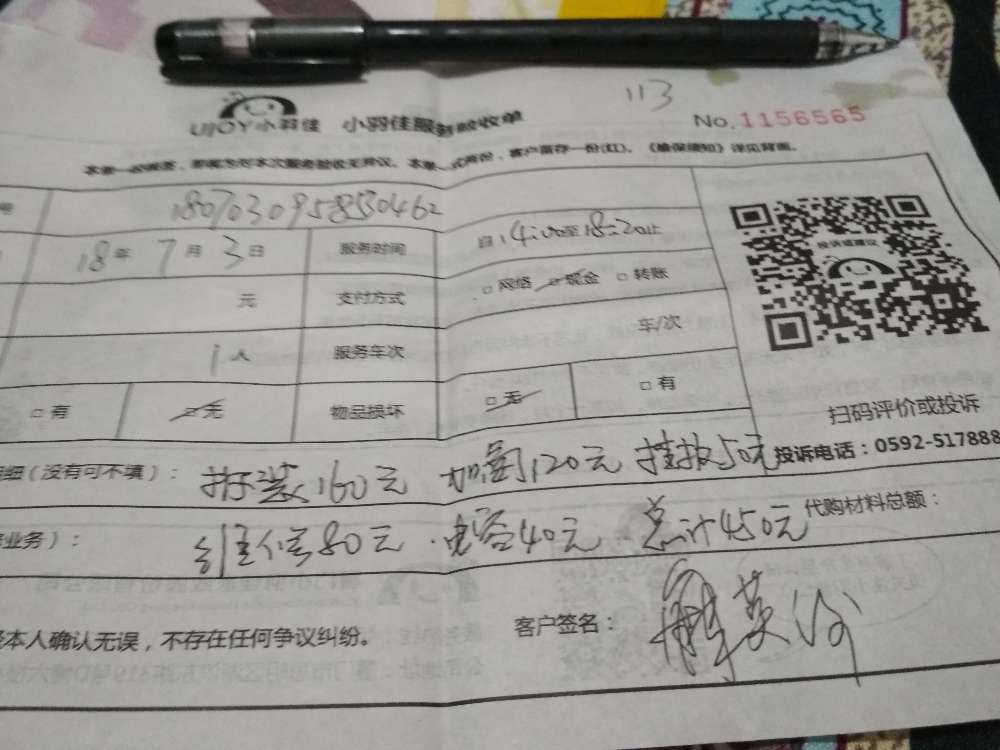 113
UJOY小羽佳 小羽佳服务验收单 No.1156565
本单一式两份，客户留存一份(红)。《维保须知》详见背面。
180703095850462
18年 7月 3日 服务时间 自14:00至18:20止
投诉或建议
元 支付方式 □网络 □现金 □转账
1人 服务车次 车/次
□有 □无 物品损坏 □无 □有
扫码评价或投诉
细（没有可不填）： 拆装160元 加氟120元 挂板50元 投诉电话：0592-517888
业务）： 维修80元 电容40元 总计450元 代购材料总额：
本人确认无误，不存在任何争议纠纷。 客户签名：